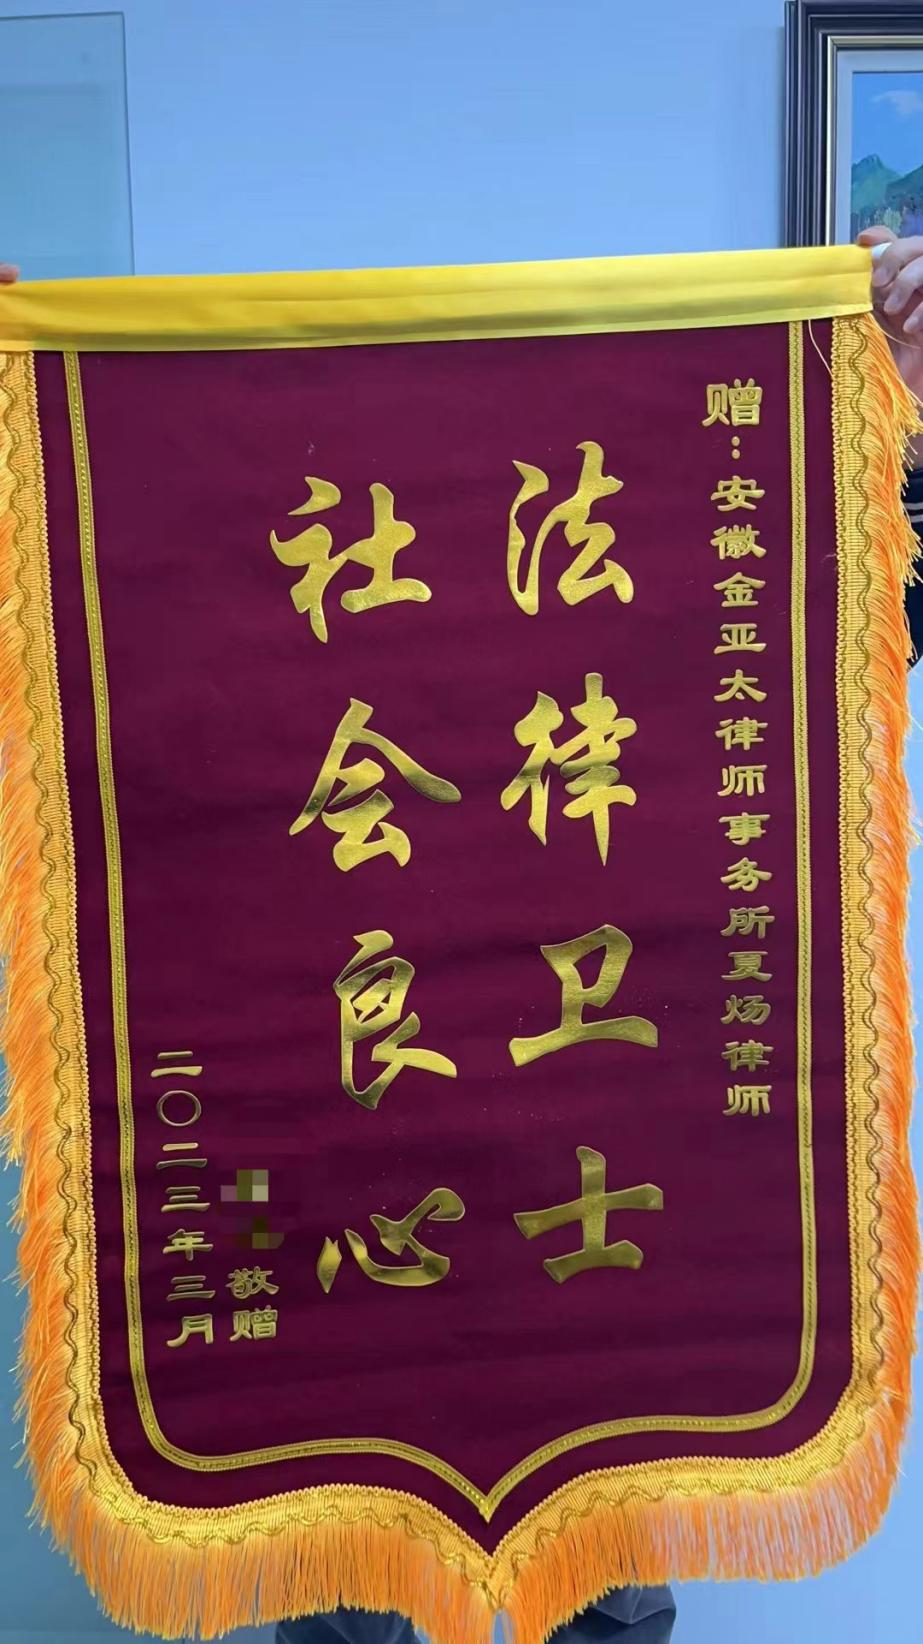 赠：安徽金亚太律师事务所夏炀律师
法律卫士
社会良心
敬赠
二〇二三年三月